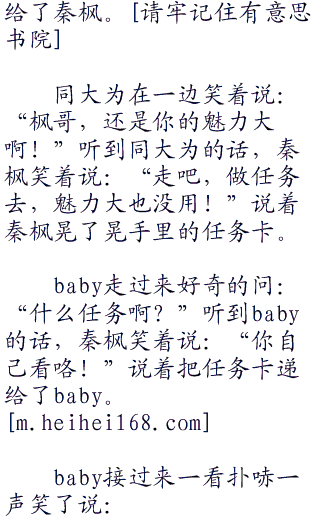 给了秦枫。[请牢记住有意思
书院]
同大为在一边笑着说：
“枫哥，还是你的魅力大
啊！”听到同大为的话，秦
枫笑着说：“走吧，做任务
去，魅力大也没用！”说着
秦枫晃了晃手里的任务卡。
baby走过来好奇的问：
“什么任务啊？”听到baby
的话，秦枫笑着说：“你自
己看咯！”说着把任务卡递
给了baby。
[m.heihei168.com]
baby接过来一看扑哧一
声笑了说：